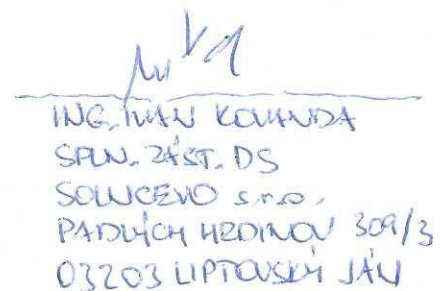 ING. IVAN KOVANDA
SPLN. ZÁST. DS
SOLNCEVO s.r.o.
PADLÝCH HRDINOV 309/3
03203 LIPTOVSKÝ JÁN